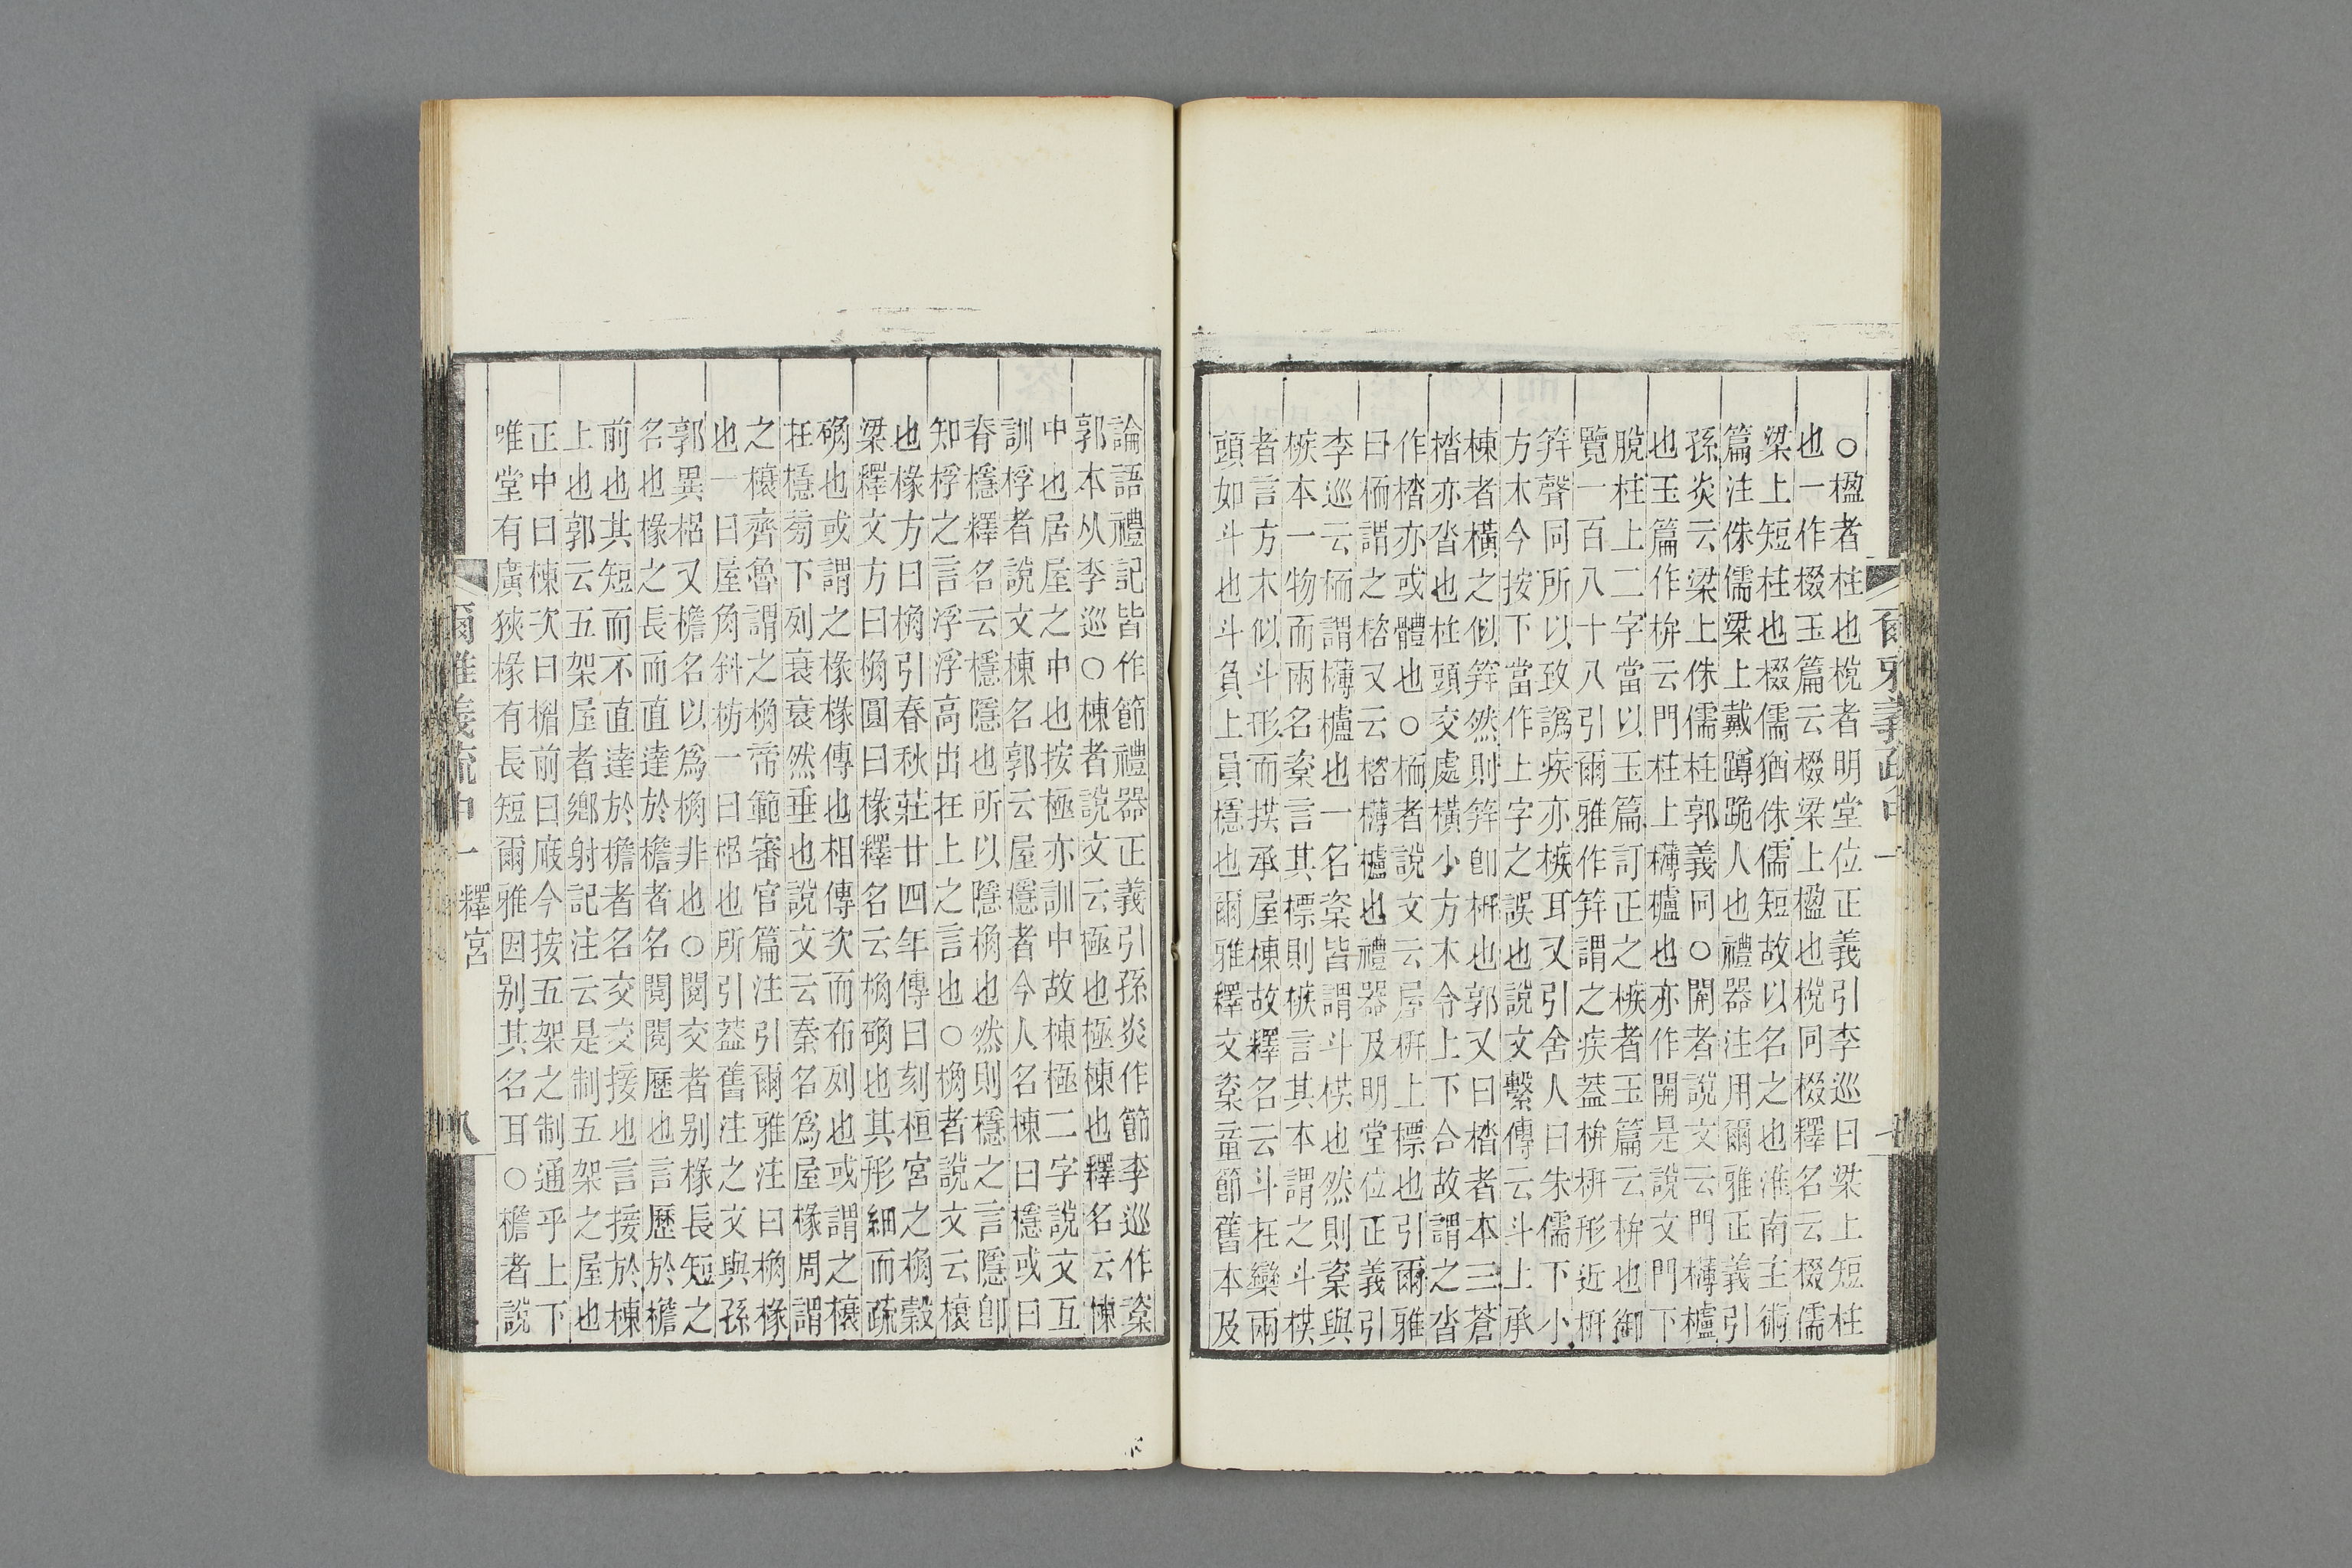 ○楹者柱也梲者明堂位正義引李巡曰梁上短柱
也一作棳玉篇云棳梁上楹也梲同棳釋名云棳儒
梁上短柱也棳儒猶侏儒短故以名之也淮南主術
篇注侏儒梁上戴蹲跪人也禮器注用爾雅正義引
孫炎云梁上侏儒柱郭義同○開者說文云門欂櫨
也玉篇作枅云門柱上欂櫨也亦作開是說文門下
脫柱上二字當以玉篇訂正之槉者玉篇云枅也御
覽一百八十八引爾雅作笄謂之疾蓋枅栟形近栟
笄聲同所以致譌疾亦槉耳又引舍人曰朱儒下小
方木今按下當作上字之誤也說文繫傳云斗上承
棟者橫之似笄然則笄卽栟也郭又曰楷者本三蒼
楷亦沓也柱頭交處橫小方木令上下合故謂之沓
作楷亦或體也○栭者說文云屋枅上標也引爾雅
曰栭謂之楶又云楶欂櫨也禮器及明堂位正義引
李巡云栭謂欂櫨也一名楶皆謂斗栱也然則楶與
槉本一物而兩名楶言其標則槉言其本謂之斗栱
者言方木似斗形而拱承屋棟故釋名云斗在欒兩
頭如斗也斗負上員檼也爾雅釋文楶音節舊本及
論語禮記皆作節禮器正義引孫炎作節李巡作楶
郭本从李巡○棟者說文云極也極棟也釋名云棟
中也居屋之中也按極亦訓中故棟極二字說文互
訓桴者說文棟名郭云屋檼者今人名棟曰檼或曰
脊檼釋名云檼隱也所以隱桷也然則檼之言隱卽
知桴之言浮浮高出在上之言也○桷者說文云榱
也椽方曰桷引春秋莊廿四年傳曰刻桓宮之桷穀
梁釋文方曰桷圓曰椽釋名云桷确也其形細而疏
确也或謂之椽椽傳也相傳次而布列也或謂之榱
在檼菊下列衰衰然垂也說文云秦名爲屋椽周謂
之榱齊魯謂之桷帝範審官篇注引爾雅注曰桷椽
也一曰屋角斜枋一曰梠也所引蓋舊注之文與孫
郭異梠又檐名以爲桷非也○閱交者別椽長短之
名也椽之長而直達於檐者名閱閱歷也言歷於檐
前也其短而不直達於檐者名交交接也言接於棟
上也郭云五架屋者鄉射記注云是制五架之屋也
正中曰棟次曰楣前曰庪今按五架之制通乎上下
唯堂有廣狹椽有長短爾雅因別其名耳○檐者說
爾雅義疏中一 釋宮
八